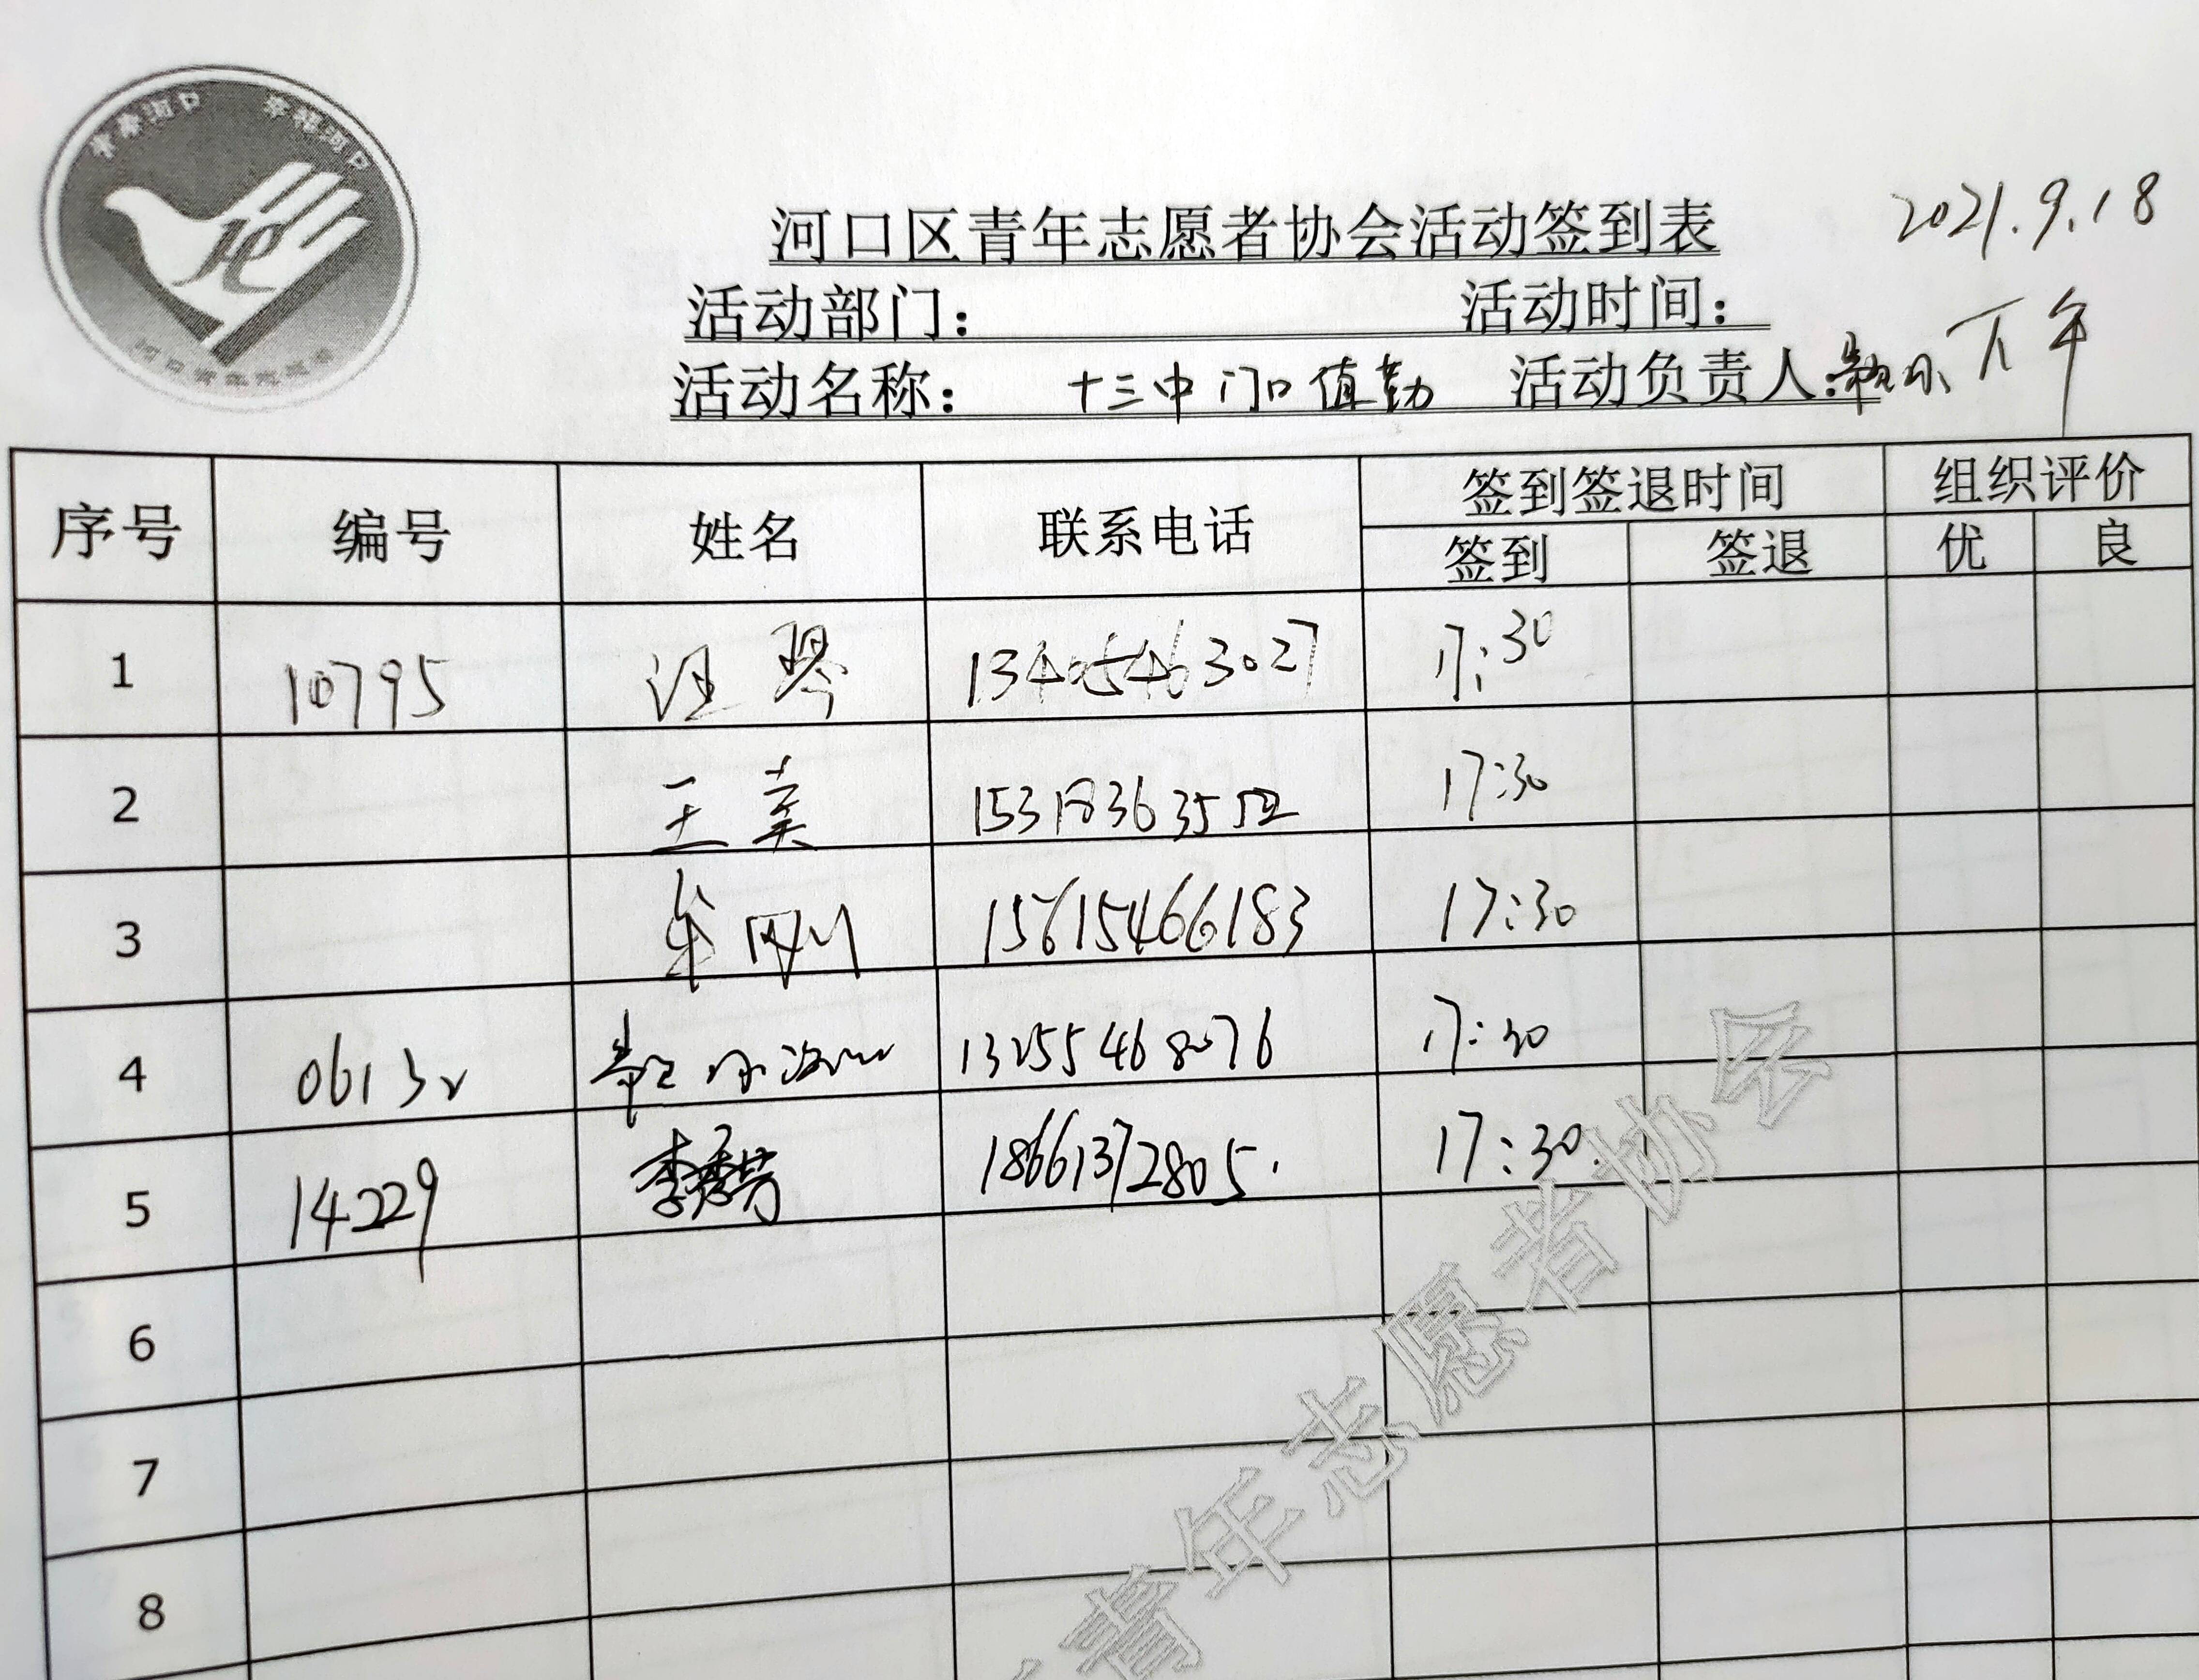 青春河口 幸福河口
河口区青年志愿者协会活动签到表 2021.9.18
活动部门： 活动时间： 下午
活动名称： 十三中门口值勤 活动负责人：
序号 编号 姓名 联系电话 签到签退时间 组织评价
签到 签退 优 良
1 10795 汪琴 13405463027 17:30
2 王美 15318363552 17:30
3 牟刚 15615466183 17:30
4 06132 13255468076 17:30
5 14229 李秀芳 18661372805. 17:30.
6
7
8
青年志愿者协会